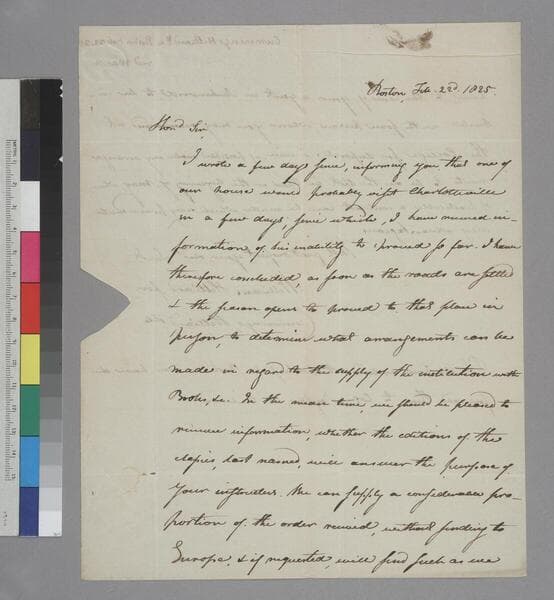 Cummings, Hilliard & Co. Boston Feb. 22. 25
Boston, Feb. 22d. 1825.
Hond Sir,
I wrote a few days since, informing you that one of
our house would probably visit Charlottesville
in a few days since which, I have received in-
formation of his inability to proceed so far. I have
therefore concluded, as soon as the roads are settled
& the season opens to proceed to that place in
person, to determine what arrangements can be
made in regard to the supply of the institution with
Books, &c. In the mean time, we should be pleased to
receive information, whether the editions of the
classics, last named, will answer the purpose of
your instructors. We can supply a considerable pro-
portion of the order received, without sending to
Europe, & if requested, will send such as we